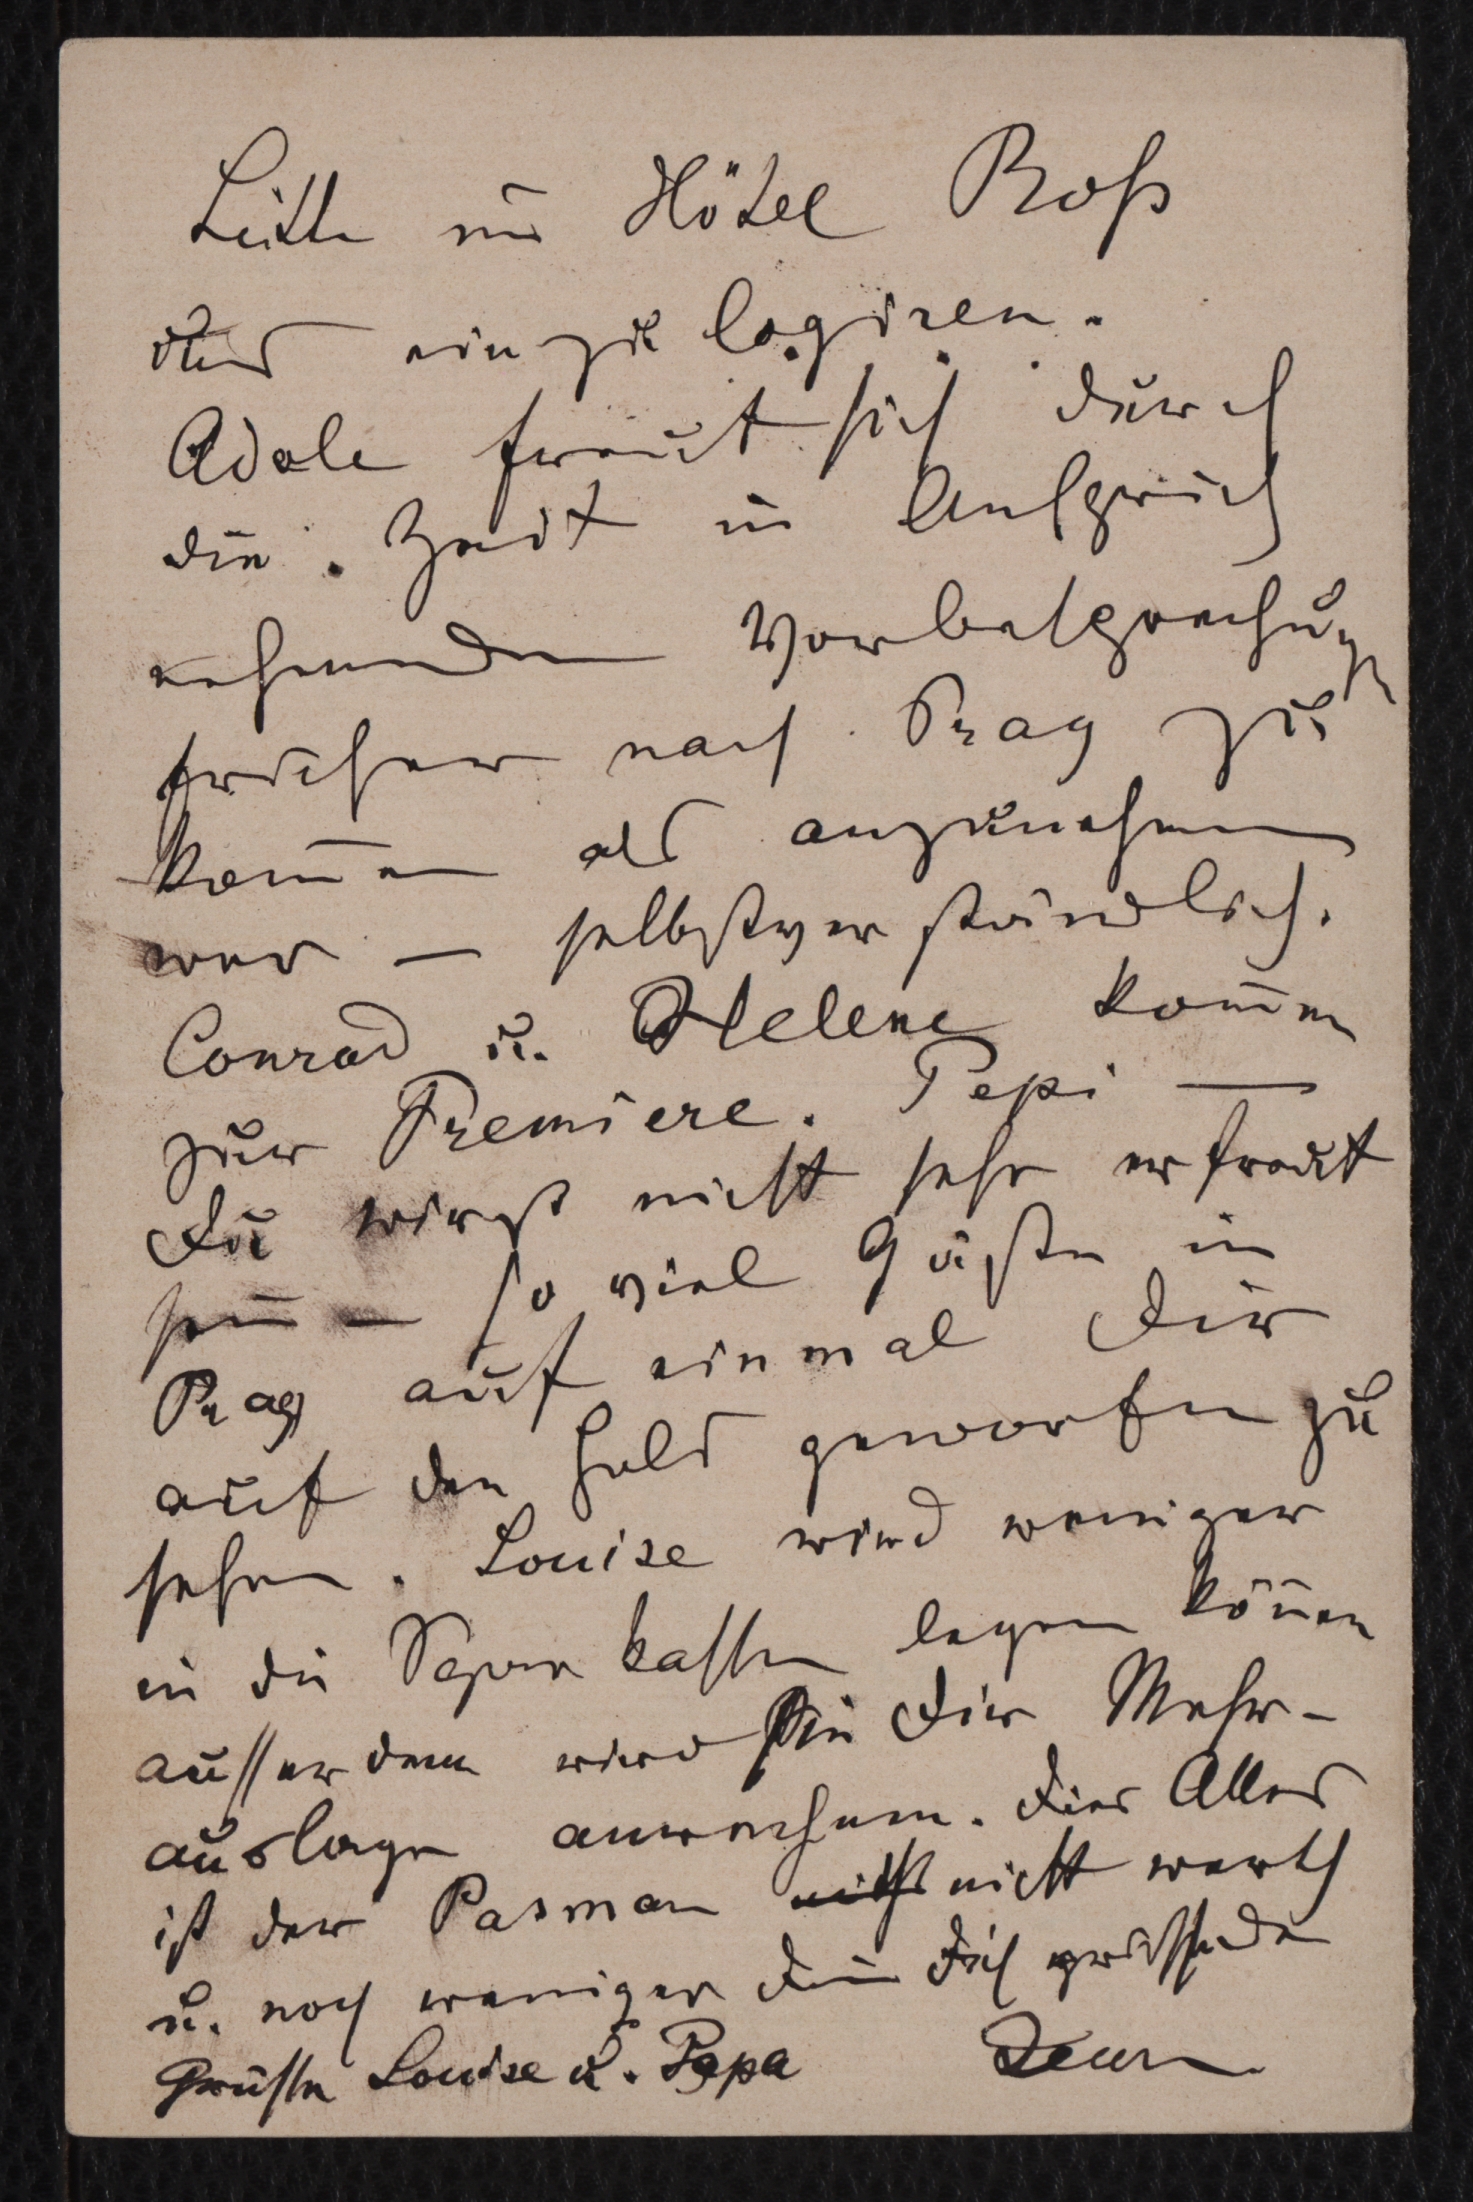 Bitte im Hôtel Roß
uns einzulogiren.
Adele freut sich durch
die Zeit in Anspruch
nehmenden Vorbesprechungen
früher nach Prag zu
kom̅en als anzunehmen
war — selbstverständlich.
Conrad u. Helene kom̅en
zur Premiere. Pepi —
Du wirst nicht sehr erfreut
sein — so viel Gäste in
Prag auf einmal Dir
auf den Hals geworfen zu
sehen. Louise wird weniger
in die Sparkassen legen kön̅en
ausserdem wird sie Dir Mehr-
auslagen anrechnen. Dies Alles
ist der Pasman nicht nicht werth
u. noch weniger Dein Dich grüssender
Grüsse Louise u. Papa Jean